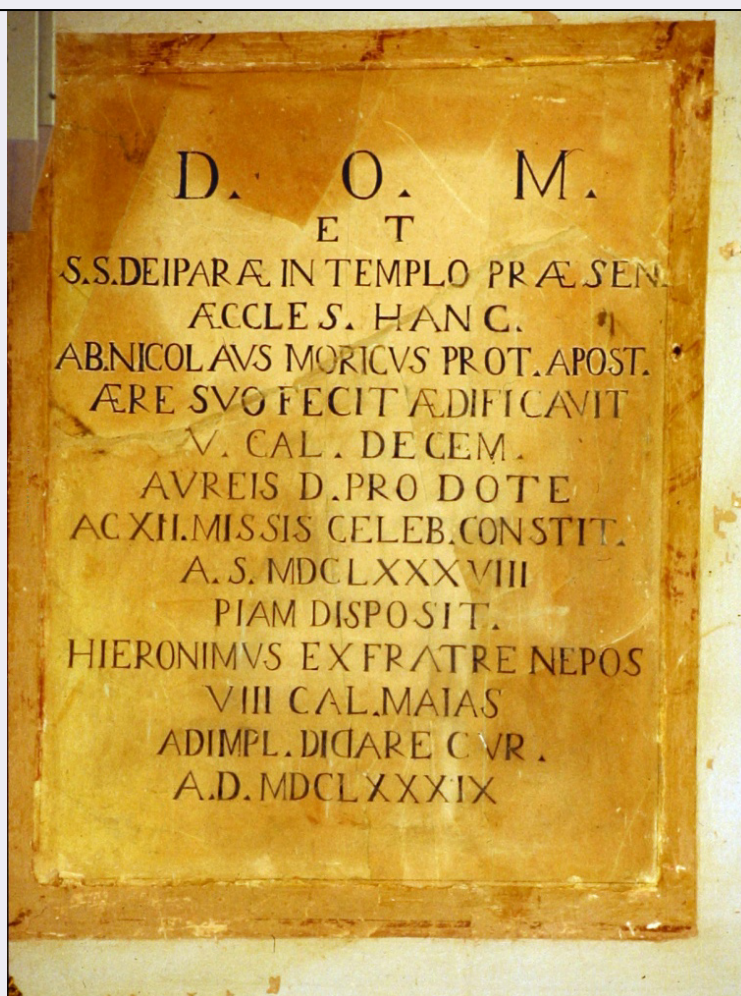 D. O. M.
ET
S.S.DEIPARÆ IN TEMPLO PRÆSEN.
ÆCCLES. HANC.
AB.NICOLAVS MORICVS PROT.APOST.
ÆRE SVO FECIT ÆDIFICAVIT
V. CAL. DECEM.
AVREIS D.PRO DOTE
AC XII.MISSIS CELEB.CONSTIT.
A.S. MDCLXXXVIII
PIAM DISPOSIT.
HIERONIMVS EX FRATRE NEPOS
VIII CAL.MAIAS
ADIMPL.DICIARE CVR.
A.D. MDCLXXXIX